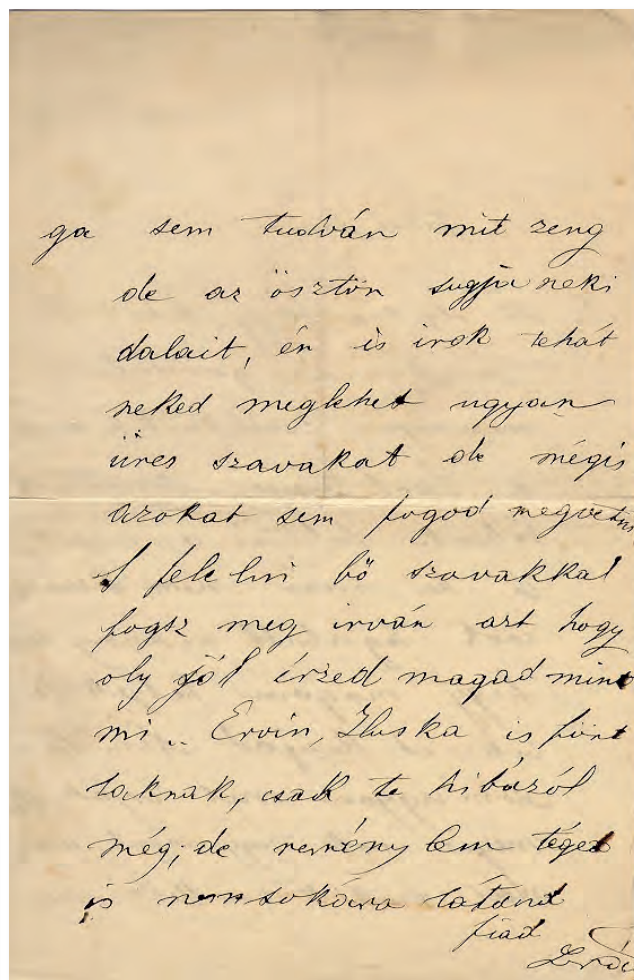 ga sem tudván mit zeng
de az ösztön sugja neki
dalait, én is irok tehát
neked meglehet ugyan
üres szavakat de mégis
azokat sem fogod megvetni
S felelni bő szavakkal
fogsz meg irván azt hogy
oly jól érzed magad mint
mi.. Ervin, Iluska is
laknak, csak te hibázól
még; de reménylem téged
is nemsokára látand
fiad